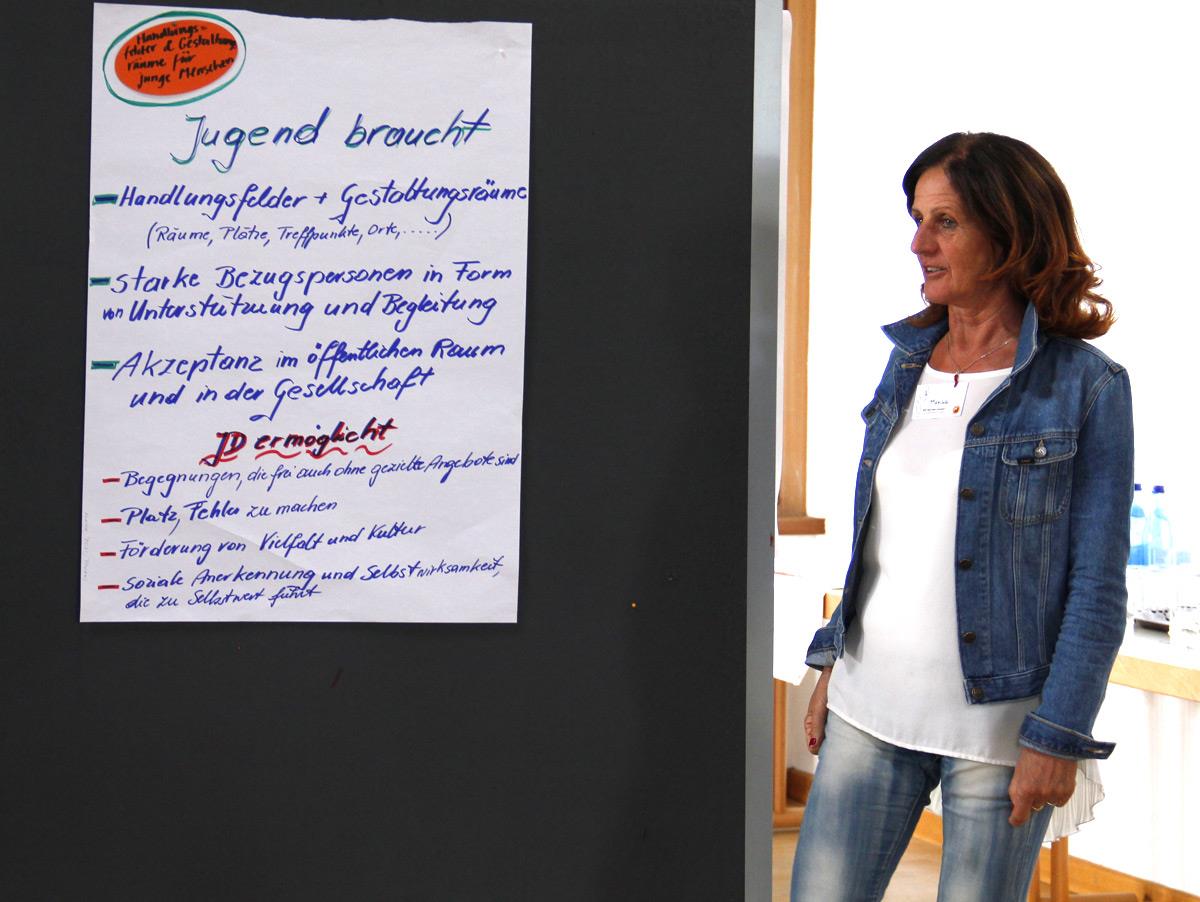 Handlungs-
felder & Gestaltungs
räume für
junge Menschen
Jugend braucht
Handlungsfelder + Gestaltungsräume
(Räume, Plätze, Treffpunkte, Orte, .....)
starke Bezugspersonen in Form
von Unterstützung und Begleitung
Akzeptanz im öffentlichen Raum
und in der Gesellschaft
JD ermöglicht
Begegnungen, die frei auch ohne gezielte Angebote sind
Platz, Fehler zu machen
Förderung von Vielfalt und Kultur
soziale Anerkennung und Selbstwirksamkeit,
die zu Selbstwert führt